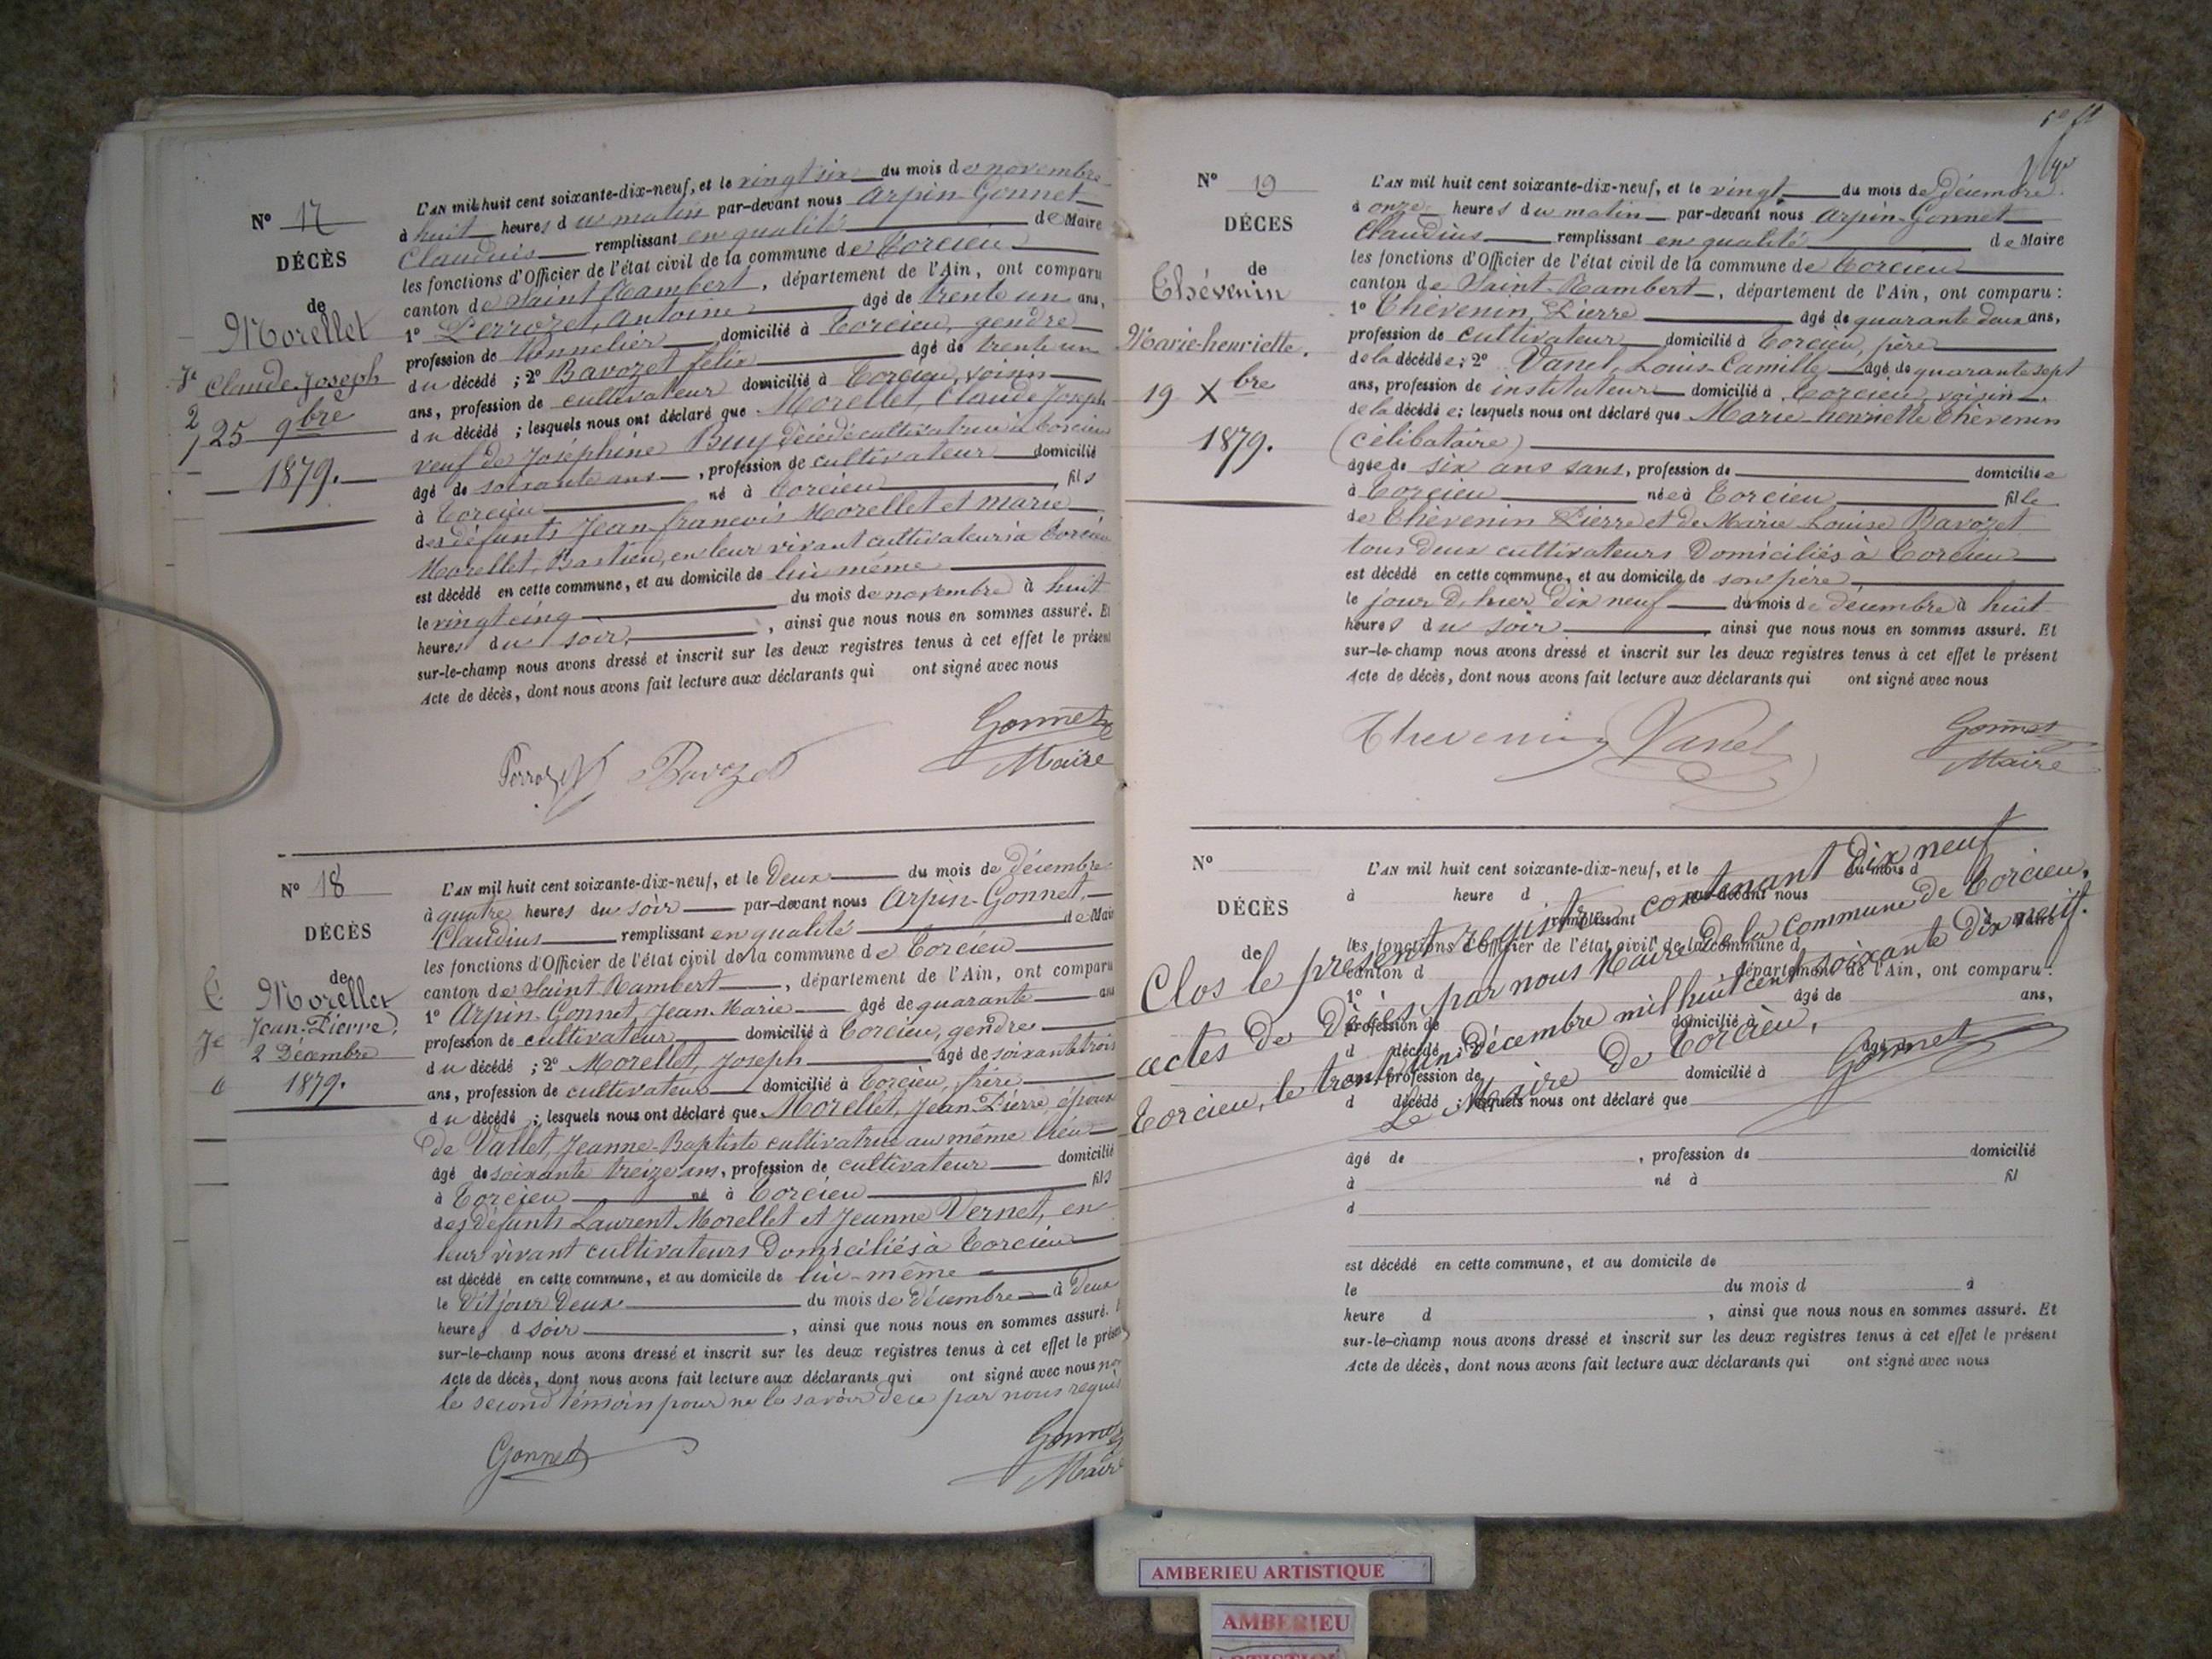 N° 17
DÉCÈS
de
Morellet
Claude-Joseph
25 9bre
1879.
L'AN mil huit cent soixante-dix-neuf, et le vingt six du mois de novembre
à huit heures du matin par-devant nous Arpin-Gonnet
Claudius remplissant en qualité de Maire
les fonctions d'Officier de l'état civil de la commune de Torcieu
canton de Saint Rambert, département de l'Ain, ont comparu
1° Perrozet, Antoine âgé de trente un ans,
profession de tonnelier domicilié à Torcieu, gendre
du décédé ; 2° Bavozet félix âgé de trente un
ans, profession de cultivateur domicilié à Torcieu, voisin
du décédé ; lesquels nous ont déclaré que Morellet, Claude Joseph
veuf de Joséphine Buy, décédé cultivatrice à Torcieu
âgé de soixante ans, profession de cultivateur domicilié
à Torcieu né à Torcieu fils
des défunts Jean-françois Morellet et Marie
Morellet, Bastien, en leur vivant cultivateurs à Torcieu
est décédé en cette commune, et au domicile de lui même
le vingt cinq du mois de novembre à huit
heures du soir, ainsi que nous nous en sommes assuré. Et
sur-le-champ nous avons dressé et inscrit sur les deux registres tenus à cet effet le présent
Acte de décès, dont nous avons fait lecture aux déclarants qui ont signé avec nous
Perrozet Bavozet Gonnet
Maire
N° 18
DÉCÈS
de
Morellet
Jean-Pierre
2 Décembre
1879.
L'AN mil huit cent soixante-dix-neuf, et le Deux du mois de Décembre
à quatre heures du soir par-devant nous Arpin-Gonnet,
Claudius remplissant en qualité de Maire
les fonctions d'Officier de l'état civil de la commune de Torcieu
canton de Saint Rambert, département de l'Ain, ont comparu
1° Arpin-Gonnet, Jean-Marie âgé de quarante ans
profession de cultivateur domicilié à Torcieu, gendre
du décédé ; 2° Morellet, Joseph âgé de soixante trois
ans, profession de cultivateur domicilié à Torcieu, frère
du décédé ; lesquels nous ont déclaré que Morellet, Jean Pierre, époux
de Vallet, Jeanne-Baptiste cultivatrice au même lieu
âgé de soixante treize ans, profession de cultivateur domicilié
à Torcieu né à Torcieu fils
des défunts Laurent Morellet et Jeanne Vernet, en
leur vivant cultivateurs Domiciliés à Torcieu
est décédé en cette commune, et au domicile de lui-même
le Dit jour Deux du mois de Décembre à Deux
heures d soir, ainsi que nous nous en sommes assuré. E
sur-le-champ nous avons dressé et inscrit sur les deux registres tenus à cet effet le présen
Acte de décès, dont nous avons fait lecture aux déclarants qui ont signé avec nous non
le second témoin pour ne le savoir de ce par nous requis
Gonnet Gonnet
Maire
N° 19
DÉCÈS
de
Thévenin
Marie-henriette.
19 Xbre
1879.
L'AN mil huit cent soixante-dix-neuf, et le vingt du mois de décembre
à onze heures du matin par-devant nous Arpin-Gonnet
Claudius remplissant en qualité de Maire
les fonctions d'Officier de l'état civil de la commune de Torcieu
canton de Saint-Rambert, département de l'Ain, ont comparu :
1° Thévenin, Pierre âgé de quarante deux ans,
profession de cultivateur domicilié à Torcieu, père
de la décédée ; 2° Vanel, Louis-Camille âgé de quarante sept
ans, profession de instituteur domicilié à Torcieu, voisin
de la décédée ; lesquels nous ont déclaré que Marie-henriette Thévenin
(célibataire)
âgée de six ans sans, profession de domiciliée
à Torcieu née à Torcieu fille
de Thévenin Pierre et de Marie Louise Bavozet
tous Deux cultivateurs Domiciliés à Torcieu
est décédé en cette commune, et au domicile de son père
le jour D'hier Dix neuf du mois de décembre à huit
heures du soir, ainsi que nous nous en sommes assuré. Et
sur-le-champ nous avons dressé et inscrit sur les deux registres tenus à cet effet le présent
Acte de décès, dont nous avons fait lecture aux déclarants qui ont signé avec nous
Thevenin Vanel Gonnet
Maire
N°
DÉCÈS
de
L'AN mil huit cent soixante-dix-neuf, et le du mois d
à heure d par-devant nous
remplissant d Maire
les fonctions d'Officier de l'état civil de la commune d
canton d département de l'Ain, ont comparu :
1° âgé de ans,
profession de domicilié à
d décédé ; âgé de
ans, profession de domicilié à
d décédé ; lesquels nous ont déclaré que
Clos le présent registre contenant Dix neuf
actes de Décès par nous Maire de la Commune de Torcieu,
Torcieu, le trente un Décembre mil huit cent soixante Dix neuf.
Le Maire de Torcieu,
Gonnet
âgé de , profession de domicilié
à né à fil
d
est décédé en cette commune, et au domicile de
le du mois d à
heure d , ainsi que nous nous en sommes assuré. Et
sur-le-champ nous avons dressé et inscrit sur les deux registres tenus à cet effet le présent
Acte de décès, dont nous avons fait lecture aux déclarants qui ont signé avec nous
AMBERIEU ARTISTIQUE
AMBERIEU
ARTISTIQUE